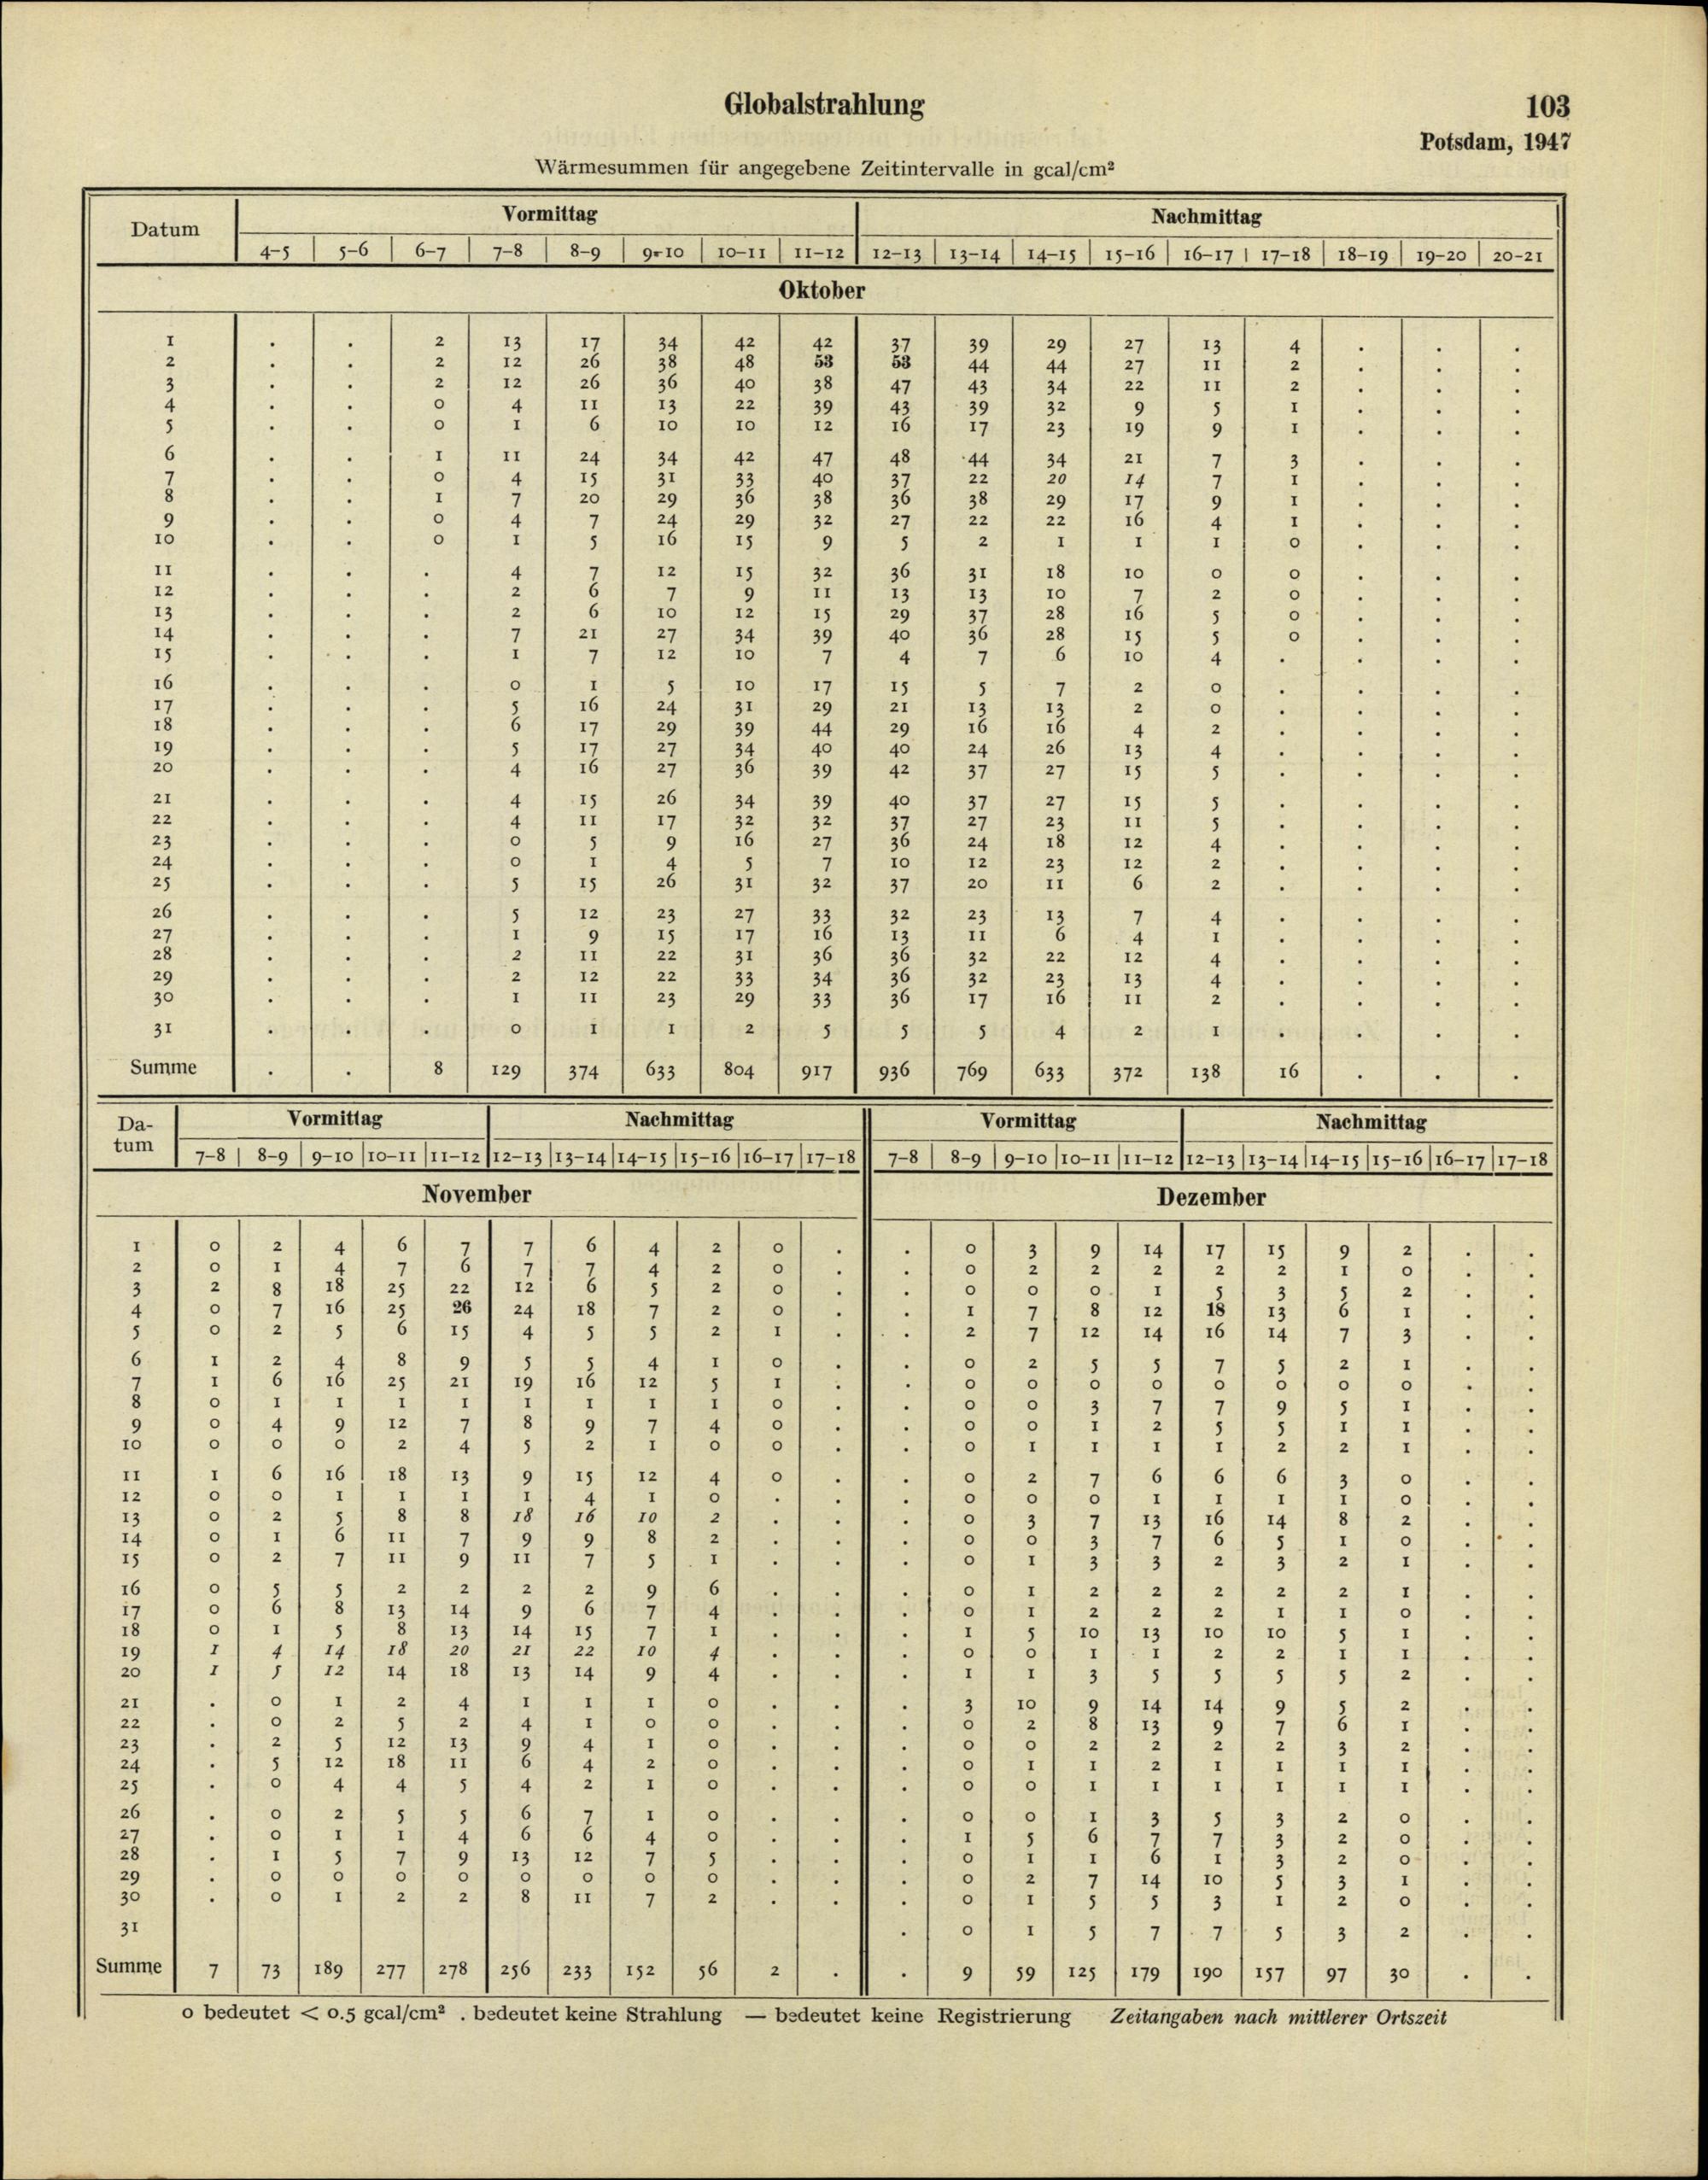 Globalstrahlung 103
Potsdam, 1947
Wärmesummen für angegebene Zeitintervalle in gcal/cm²
Datum Vormittag Nachmittag
4–5 5–6 6–7 7–8 8–9 9–10 10–11 11–12 12–13 13–14 14–15 15–16 16–17 17–18 18–19 19–20 20–21
Oktober
1 . . 2 13 17 34 42 42 37 39 29 27 13 4 . . .
2 . . 2 12 26 38 48 53 53 44 44 27 11 2 . . .
3 . . 2 12 26 36 40 38 47 43 34 22 11 2 . . .
4 . . 0 4 11 13 22 39 43 39 32 9 5 1 . . .
5 . . 0 1 6 10 10 12 16 17 23 19 9 1 . . .
6 . . 1 11 24 34 42 47 48 44 34 21 7 3 . . .
7 . . 0 4 15 31 33 40 37 22 20 14 7 1 . . .
8 . . 1 7 20 29 36 38 36 38 29 17 9 1 . . .
9 . . 0 4 7 24 29 32 27 22 22 16 4 1 . . .
10 . . 0 1 5 16 15 9 5 2 1 1 1 0 . . .
11 . . . 4 7 12 15 32 36 31 18 10 0 0 . . .
12 . . . 2 6 7 9 11 13 13 10 7 2 0 . . .
13 . . . 2 6 10 12 15 29 37 28 16 5 0 . . .
14 . . . 7 21 27 34 39 40 36 28 15 5 0 . . .
15 . . . 1 7 12 10 7 4 7 6 10 4 . . . .
16 . . . 0 1 5 10 17 15 5 7 2 0 . . . .
17 . . . 5 16 24 31 29 21 13 13 2 0 . . . .
18 . . . 6 17 29 39 44 29 16 16 4 2 . . . .
19 . . . 5 17 27 34 40 40 24 26 13 4 . . . .
20 . . . 4 16 27 36 39 42 37 27 15 5 . . . .
21 . . . 4 15 26 34 39 40 37 27 15 5 . . . .
22 . . . 4 11 17 32 32 37 27 23 11 5 . . . .
23 . . . 0 5 9 16 27 36 24 18 12 4 . . . .
24 . . . 0 1 4 5 7 10 12 23 12 2 . . . .
25 . . . 5 15 26 31 32 37 20 11 6 2 . . . .
26 . . . 5 12 23 27 33 32 23 13 7 4 . . . .
27 . . . 1 9 15 17 16 13 11 6 4 1 . . . .
28 . . . 2 11 22 31 36 36 32 22 12 4 . . . .
29 . . . 2 12 22 33 34 36 32 23 13 4 . . . .
30 . . . 1 11 23 29 33 36 17 16 11 2 . . . .
31 . . . 0 1 1 2 5 5 5 4 2 1 . . . .
Summe . . 8 129 374 633 804 917 936 769 633 372 138 16 . . .
Da-
tum Vormittag Nachmittag Vormittag Nachmittag
7–8 8–9 9–10 10–11 11–12 12–13 13–14 14–15 15–16 16–17 17–18 7–8 8–9 9–10 10–11 11–12 12–13 13–14 14–15 15–16 16–17 17–18
November Dezember
1 0 2 4 6 7 7 6 4 2 0 . . 0 3 9 14 17 15 9 2 . .
2 0 1 4 7 6 7 7 4 2 0 . . 0 2 2 2 2 2 1 0 . .
3 2 8 18 25 22 12 6 5 2 0 . . 0 0 0 1 5 3 5 2 . .
4 0 7 16 25 26 24 18 7 2 0 . . 1 7 8 12 18 13 6 1 . .
5 0 2 5 6 15 4 5 5 2 1 . . 2 7 12 14 16 14 7 3 . .
6 1 2 4 8 9 5 5 4 1 0 . . 0 2 5 5 7 5 2 1 . .
7 1 6 16 25 21 19 16 12 5 1 . . 0 0 0 0 0 0 0 0 . .
8 0 1 1 1 1 1 1 1 1 0 . . 0 0 3 7 7 9 5 1 . .
9 0 4 9 12 7 8 9 7 4 0 . . 0 0 1 2 5 5 1 1 . .
10 0 0 0 2 4 5 2 1 0 0 . . 0 1 1 1 1 2 2 1 . .
11 1 6 16 18 13 9 15 12 4 0 . . 0 2 7 6 6 6 3 0 . .
12 0 0 1 1 1 1 4 1 0 . . . 0 0 0 1 1 1 1 0 . .
13 0 2 5 8 8 18 16 10 2 . . . 0 3 7 13 16 14 8 2 . .
14 0 1 6 11 7 9 9 8 2 . . . 0 0 3 7 6 5 1 0 . .
15 0 2 7 11 9 11 7 5 1 . . . 0 1 3 3 2 3 2 1 . .
16 0 5 5 2 2 2 2 9 6 . . . 0 1 2 2 2 2 2 1 . .
17 0 6 8 13 14 9 6 7 4 . . . 0 1 2 2 2 1 1 0 . .
18 0 1 5 8 13 14 15 7 1 . . . 1 5 10 13 10 10 5 1 . .
19 1 4 14 18 20 21 22 10 4 . . . 0 0 1 1 2 2 1 1 . .
20 1 5 12 14 18 13 14 9 4 . . . 1 1 3 5 5 5 5 2 . .
21 . 0 1 2 4 1 1 1 0 . . . 3 10 9 14 14 9 5 2 . .
22 . 0 2 5 2 4 1 0 0 . . . 0 2 8 13 9 7 6 1 . .
23 . 2 5 12 13 9 4 1 0 . . . 0 0 2 2 2 2 3 2 . .
24 . 5 12 18 11 6 4 2 0 . . . 0 1 1 2 1 1 1 1 . .
25 . 0 4 4 5 4 2 1 0 . . . 0 0 1 1 1 1 1 1 . .
26 . 0 2 5 5 6 7 1 0 . . . 0 0 1 3 5 3 2 0 . .
27 . 0 1 1 4 6 6 4 0 . . . 1 5 6 7 7 3 2 0 . .
28 . 1 5 7 9 13 12 7 5 . . . 0 1 1 6 1 3 2 0 . .
29 . 0 0 0 0 0 0 0 0 . . . 0 2 7 14 10 5 3 1 . .
30 . 0 1 2 2 8 11 7 2 . . . 0 1 5 5 3 1 2 0 . .
31 . 0 1 5 7 7 5 3 2 . .
Summe 7 73 189 277 278 256 233 152 56 2 . . 9 59 125 179 190 157 97 30 . .
0 bedeutet < 0.5 gcal/cm² . bedeutet keine Strahlung — bedeutet keine Registrierung Zeitangaben nach mittlerer Ortszeit